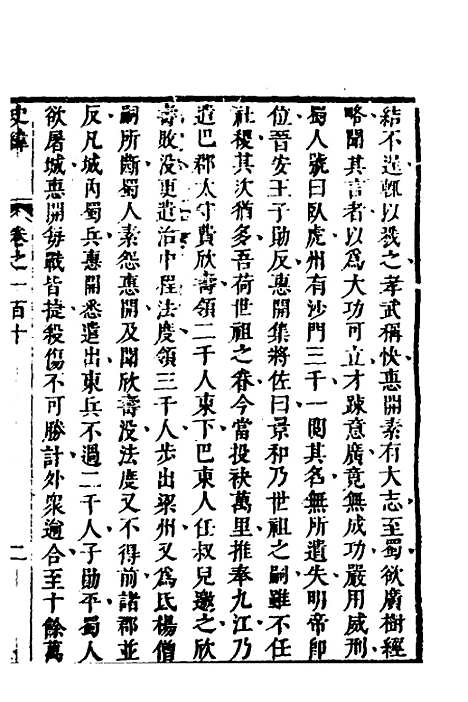 結不逞輒以戮之孝武稱快惠開素有大志至蜀欲廣樹經
略聞其言者以爲大功可立才踈意廣竟無成功嚴用威刑
蜀人號曰臥虎州有沙門三千一閱其名無所遺失明帝卽
位晉安王子勛反惠開集將佐曰景和乃世祖之嗣雖不任
社稷其次猶多吾荷世祖之眷今當投袂萬里推奉九江乃
遣巴郡太守費欣壽領二千人東下巴東人任叔兒邀之欣
壽敗沒更遣治中程法度領三千人步出梁州又爲氐楊僧
嗣所斷蜀人素怨惠開及聞欣壽沒法度又不得前諸郡並
反凡城內蜀兵惠開悉遣出東兵不過二千人子勛平蜀人
欲屠城惠開每戰皆捷殺傷不可勝計外衆逾合至十餘萬
史緯 卷之一百十 二